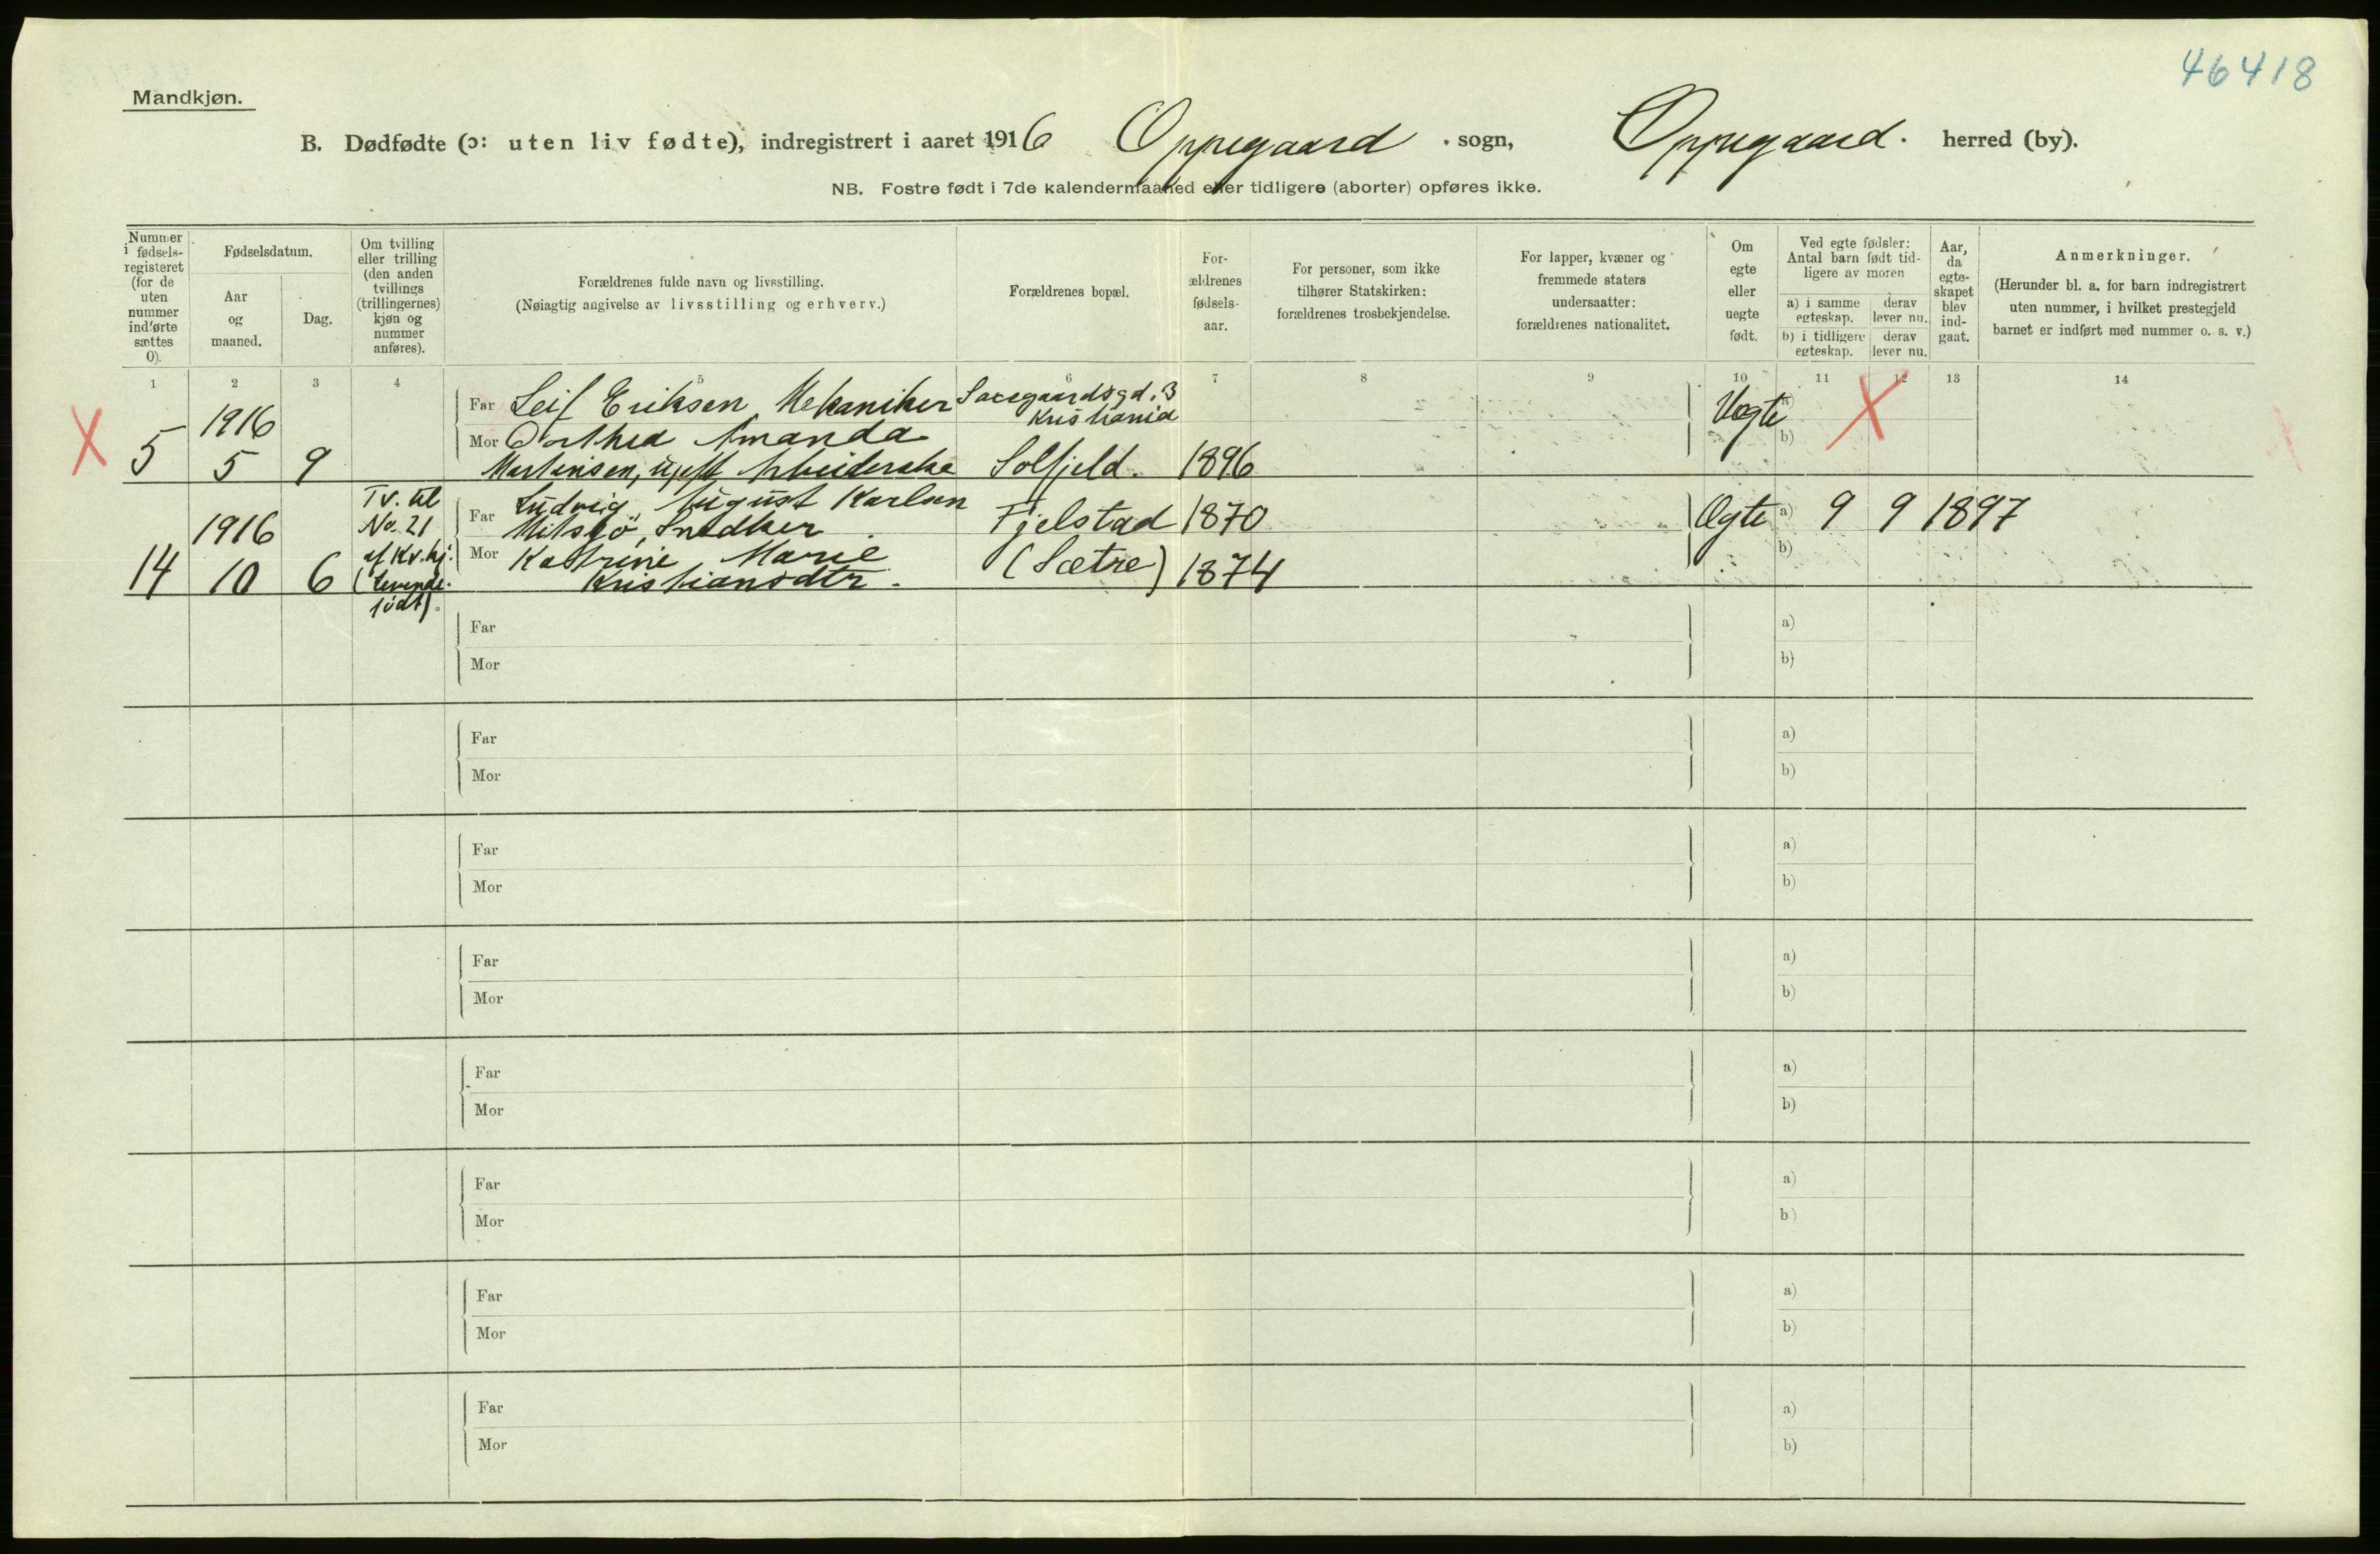 46418
Mandkjøn.
B. Dødfødte (ɔ: uten liv fødte), indregistrert i aaret 1916 Oppegaard sogn, Oppegaard. herred (by).
NB. Fostre født i 7de kalendermaaned eller tidligere (aborter) opføres ikke.
Nummer i fødsels-registeret (for de uten nummer indførte sættes 0).
Fødselsdatum.
Aar og maaned.
Dag.
Om tvilling eller trilling (den anden tvillings (trillingernes) kjøn og nummer anføres).
Forældrenes fulde navn og livsstilling.
(Nøiagtig angivelse av livsstilling og erhverv.)
Forældrenes bopæl.
For-ældrenes fødsels-aar.
For personer, som ikke tilhører Statskirken: forældrenes trosbekjendelse.
For lapper, kvæner og fremmede staters undersaatter: forældrenes nationalitet.
Om egte eller uegte født.
Ved egte fødsler: Antal barn født tid-ligere av moren
a) i samme egteskap.
derav lever nu.
b) i tidligere egteskap.
derav lever nu.
Aar, da egte-skapet blev ind-gaat.
Anmerkninger.
(Herunder bl. a. for barn indregistrert uten nummer, i hvilket prestegjeld barnet er indført med nummer o. s. v.)
1 2 3 4 5 6 7 8 9 10 11 12 13 14
X
Far Leif Eriksen Mekaniker
Kristiania
1916
Mor Dorthea Amanda
Uegte a)
b)
X
5 5 9 Martinsen, Arbeiderske Solfjeld. 1896
Tv. til
No. 21
af Kv. kj.
(Levende
født).
Far Ludvig August Karlsen
Snedker Fjelstad 1870
Ægte a) 9 9 1897
1916
Mor Katrine Marie
b)
14 10 6 Kristiansdtr. (Sætre) 1874
Far a)
Mor b)
Far a)
Mor b)
Far a)
Mor b)
Far a)
Mor b)
Far a)
Mor b)
Far a)
Mor b)
Far a)
Mor b)
Far a)
Mor b)